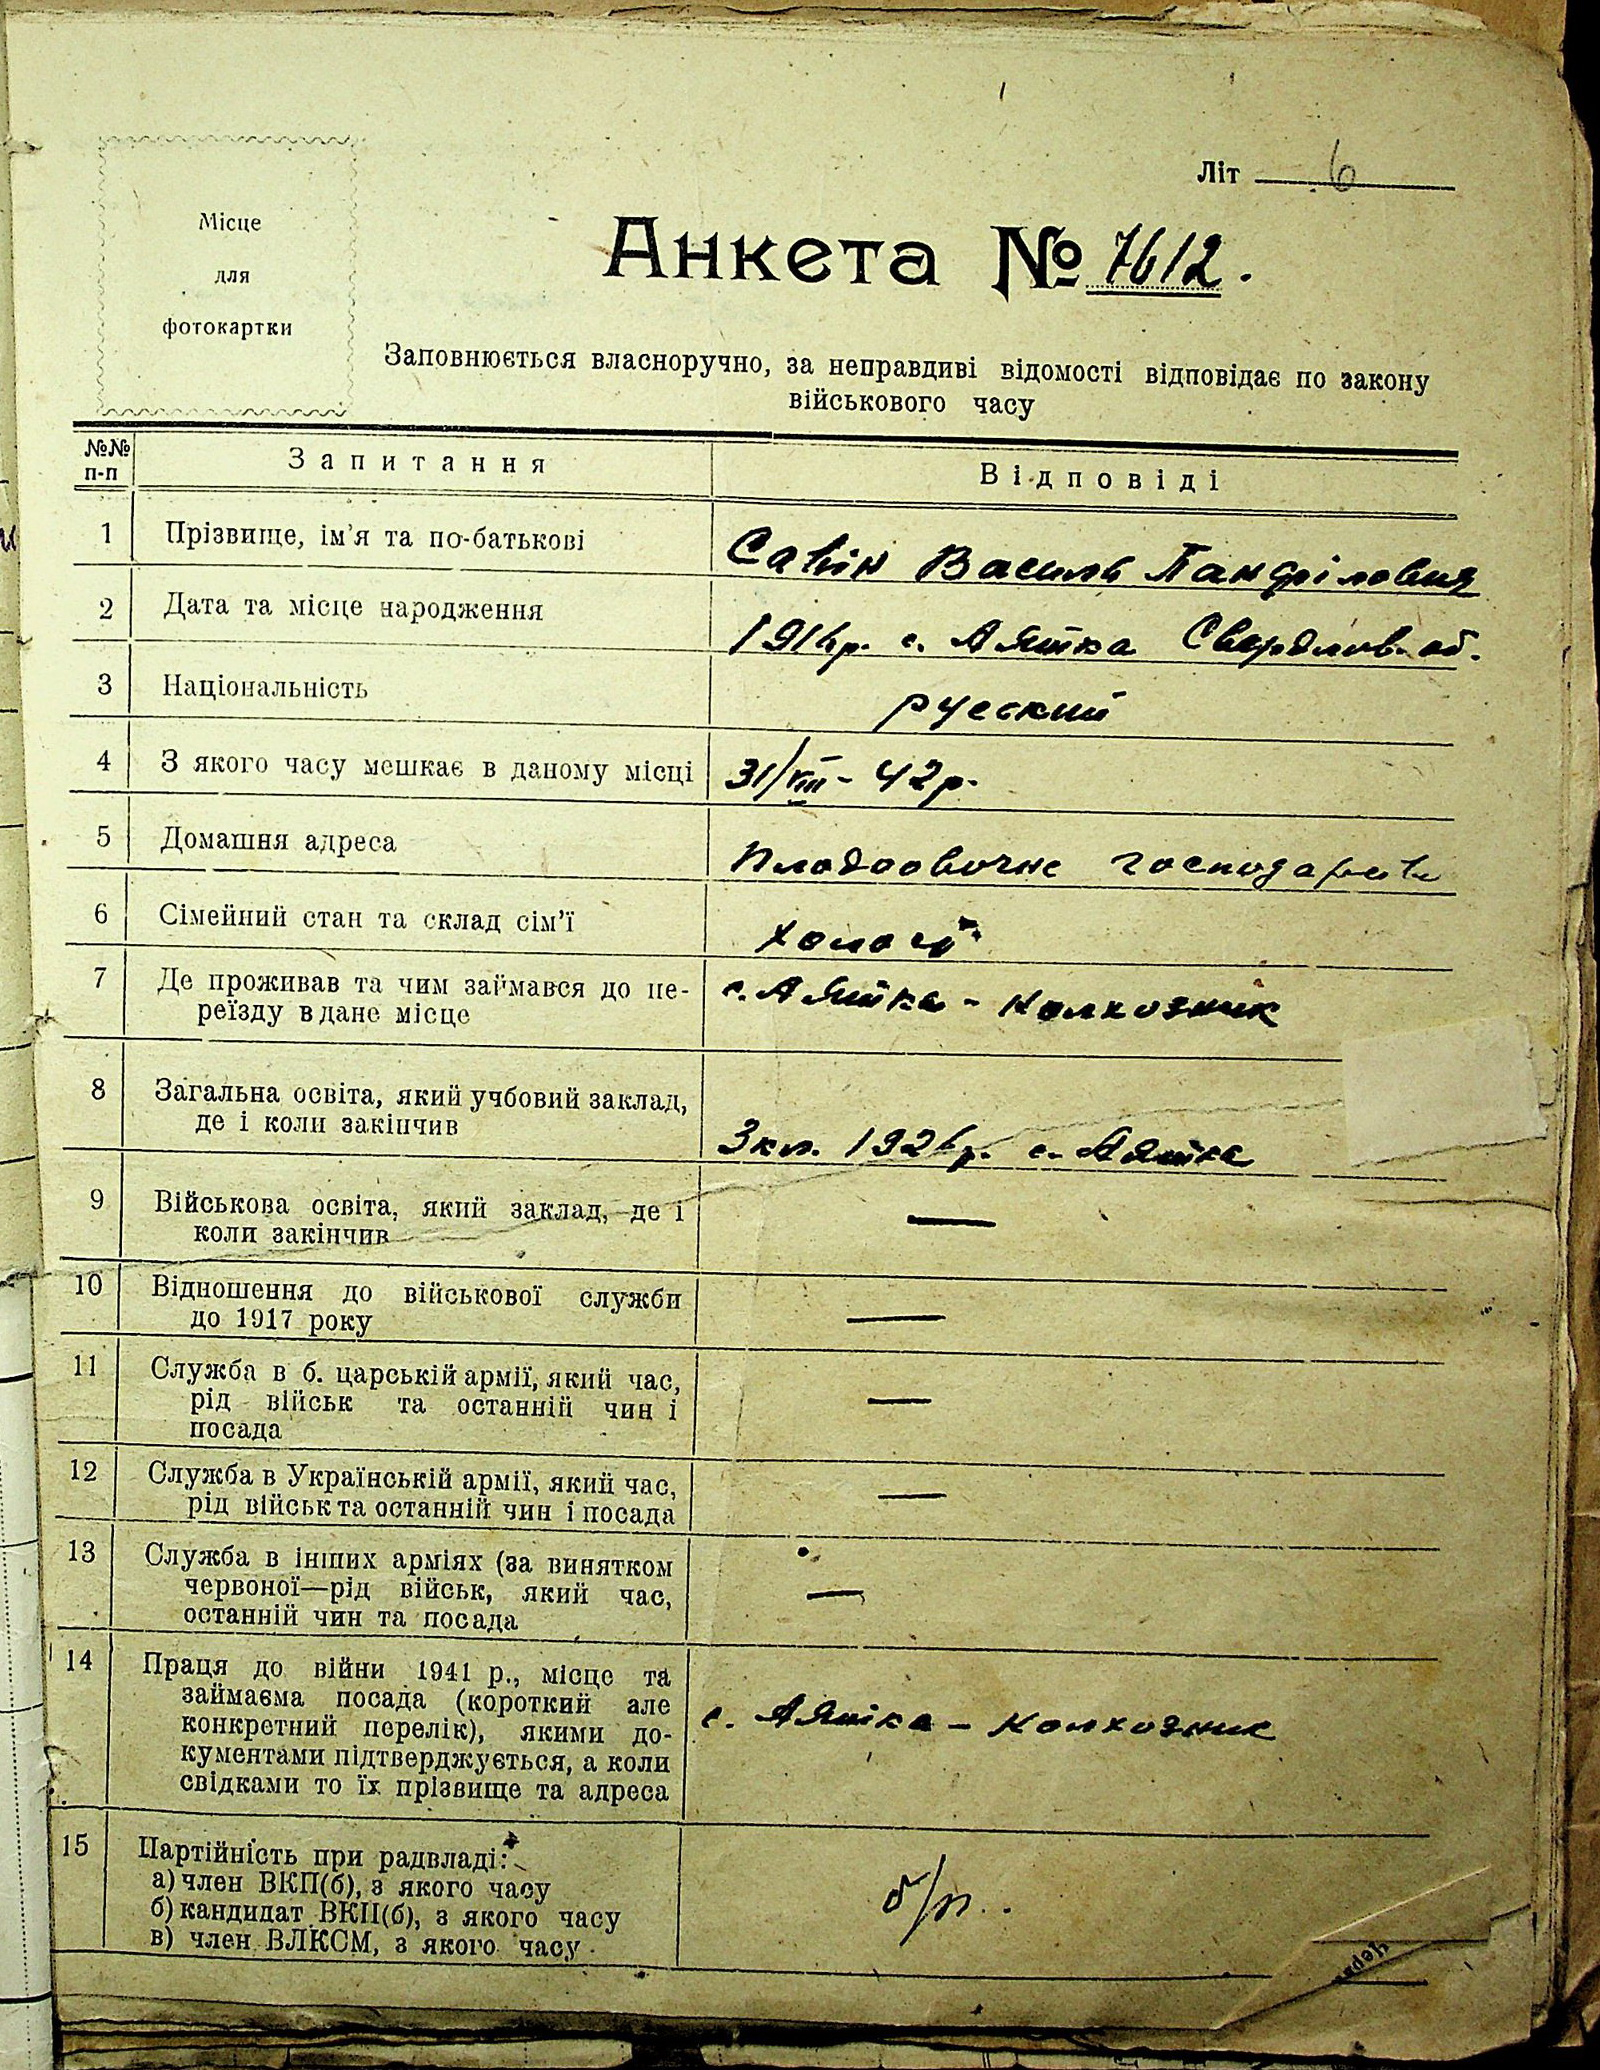 Літ 6
Місце
для
фотокартки
Анкета № 7612.
Заповнюється власноручно, за неправдиві відомості відповідає по закону
військового часу
№№ п-п Запитання Відповіді
1 Прізвище, ім'я та по-батькові Савін Василь Панфілович
2 Дата та місце народження 1916р. с. Аятка Свердлов. об.
3 Національність русский
4 З якого часу мешкає в даному місці 31/VIII - 42р.
5 Домашня адреса Плодоовочне
6 Сімейний стан та склад сім'ї холост
7 Де проживав та чим займався до пе-
реїзду в дане місце с. Аятка - колхозник
8 Загальна освіта, який учбовий заклад,
де і коли закінчив 3 кл. 1926р. с. Аятка
9 Військова освіта, який заклад, де і
коли закінчив —
10 Відношення до військової служби
до 1917 року —
11 Служба в б. царській армії, який час,
рід військ та останній чин і
посада —
12 Служба в Українській армії, який час,
рід військ та останній чин і посада —
13 Служба в інших арміях (за винятком
червоної—рід військ, який час,
останній чин та посада —
14 Праця до війни 1941 р., місце та
займаєма посада (короткий але
конкретний перелік), якими до-
кументами підтверджується, а коли
свідками то їх прізвище та адреса с. Аятка - колхозник
15 Партійність при радвладі:
а) член ВКП(б), з якого часу
б) кандидат ВКП(б), з якого часу
в) член ВЛКСМ, з якого часу б/п.